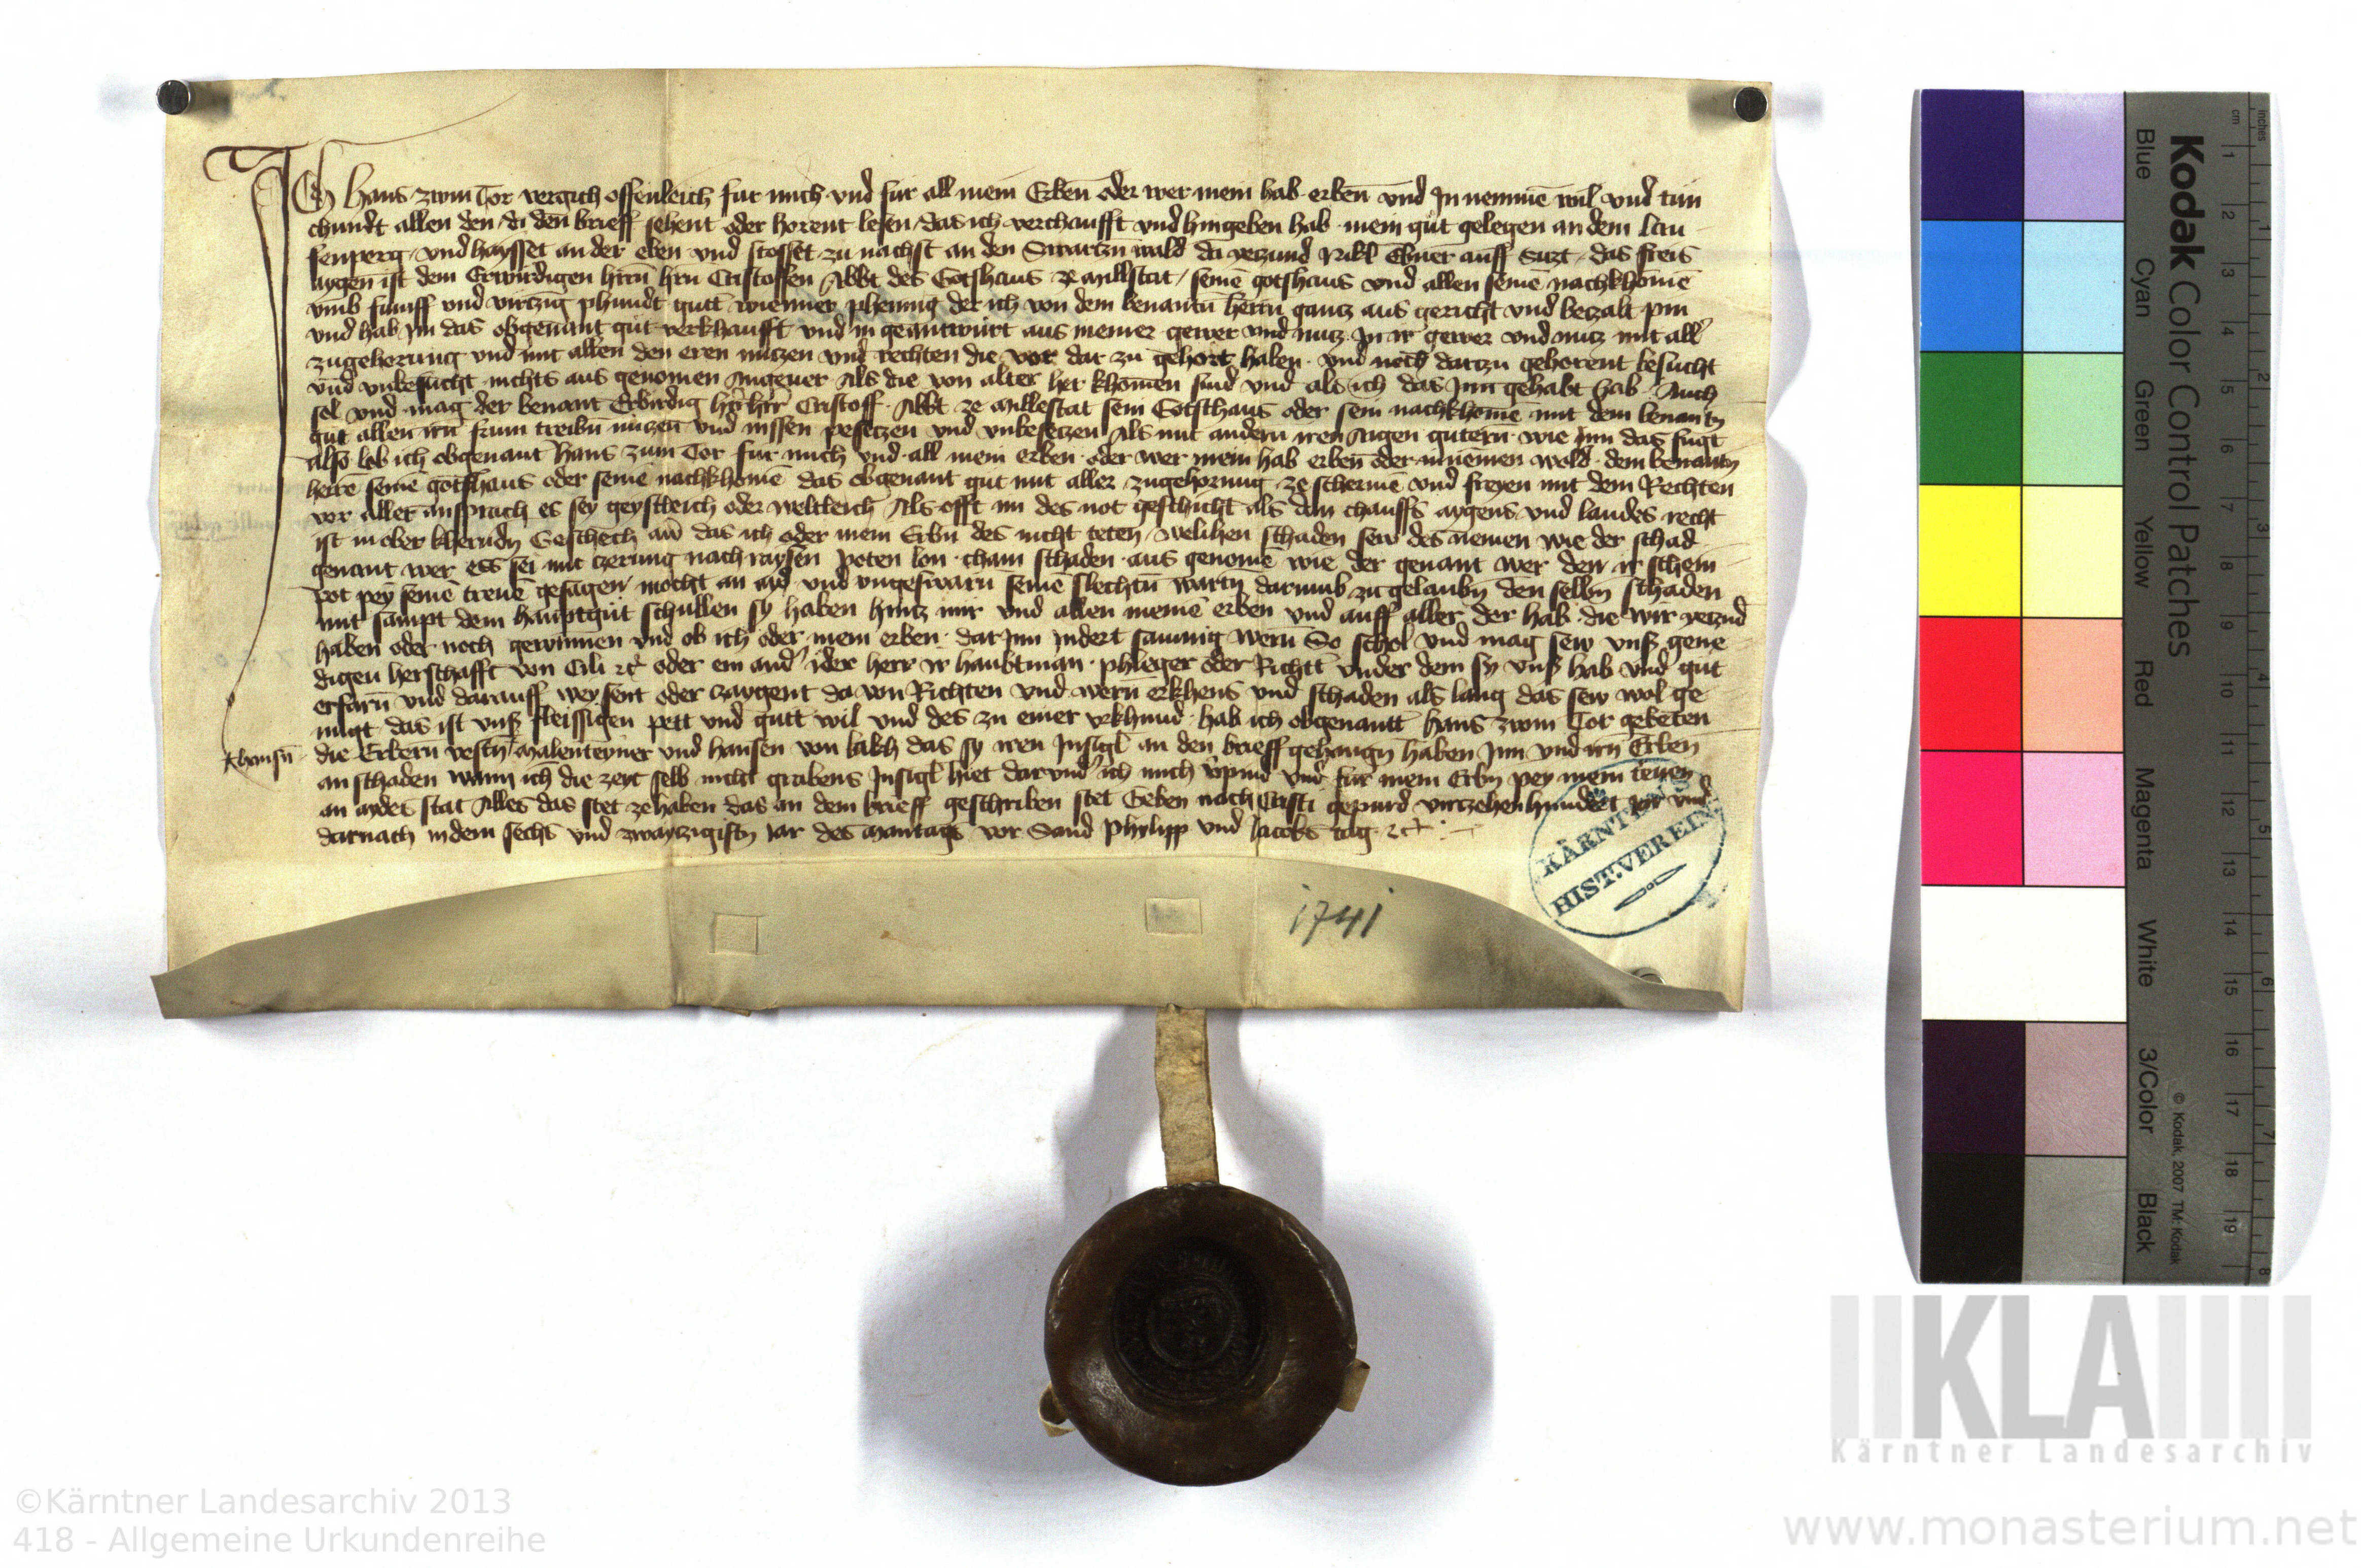 Ich Hans zwm Tor vergich offenleich fur mich vnd fur all mein Erben oder wer mein hab erben vnd Jn nemmē wil vnd tun
chundt allen den di den brieff sehent oder horent lesen das ich verchaufft vnd hingeben hab mein gut gelegen an dem Lau
senperg vnd haysset an der eben vnd stosset zu nachst an den Swartzn wald da yetzund Nikl Ebner auff siczt das freis
aygen ist dem Erwirdigen hrrn hrn Cristoffen Abbt des Gotshaus ze Millstat semē gotshaus vnd allen semē nachkhomē
vmb funff vnd virtzig phundt gutt wienner phennig der ich von dem benantn herrn gantz aus gericht vnd betzalt pin
vnd hab Jm das obgenant gut verkhaufft vnd in geantwurt aus meiner gewer vnd nutz Jn ir gewer vnd nutz mit all
zugehorung vnd mit allen den eren nutzen vnd rechten die vor dar zu gehort haben vnd noch dartzu gehorent besucht
vnd vnbesucht nichts aus genomen Als die von alter her khomen sind vnd als ich das Jnn gehabt hab Auch
sol vnd mag der benant Erbirdig hrr hrr Cristoff Abbt ze Millestat sein Gotsthaus oder sein nachkhomē mit dem benantn
gut allen irn frum treibn nuczen vnd nissen pesetzen vnd vnbesetzen Als mit andern iren Aigen gutern wie Jnn das fugt
also lob ich obgenant Hans zum Tor fur mich vnd all mein erben oder wer mein hab erben oder inn nemen wold dem benantn
herrē semē gotshaus oder semē nachkhomē das obgenant gut mit aller zugehorung ze schermē vnd freyen mit dem Rechten
vor aller ansprach es sey geystleich oder weltleich Als offt im des not geschicht als dan chauffs aygens vnd landes recht
ist in ober kherndn Geschech aū das ich oder mein Erbn des nicht teten welihen schaden sew des nemen wie der schad
genant wer ess sei mit czerung nach raysen poten lon cham schaden aus genomē wie der genant wer den ir schein
pot pey semē trewē gesagen mocht an ayd vnd vngeswarn semē slechtn wartn darumb zu gelaubn den selbn schaden
mit sampt dem hauptgut schullen sy haben hintz mir vnd allen meinē erben vnd auff aller der hab die wir yetzund
haben oder noch gewinnen vnd ob ich oder mein erben dar Jnn Jndert saumig wern So schol vnd mag sew vnß gene
digen herschafft von Cili etc oder ein and ider herr ir haubtman phleger oder Richtt vnder dem sy vnß hab vnd gut
erfarn vnd darauff weysent oder zaygent da von Richten vnd wern erkhens vnd schaden als lang das sew wol ge
nugt das ist vnß fleissigen pett vnd gutt wil vnd des zu einer vrkhund hab ich obgenantt Hans zwm Tor gebeten
die Erbern vestn Malenteyner vnd Hansen von Lakh das sy iren Jnsigl an den brieff gehangn haben Jnn vnd irn Erben
an schaden wann ich die zeyt selb nicht grabens Jnsigl hiet darvnd ich mich vpind vnd fur mein Erbn pey mein trewn
an aydes stat Alles das stet ze haben das an dem brieff geschriben stet Geben nach Cristi gepurd virczehenhundert jar vnd
darnach in dem sechs vnd zwayczigistn Jar des Mantags vor Sand Phylipp vnd Jacobs tag etc
1741
KÄRNTENS
HIST.VEREIN
Kodak Color Control Patches
Blue Cyan Green Yellow Red Magenta White 3/Color Black
© Kodak, 2007 TM: Kodak
cm 1 2 3 4 5 6 7 8 9 10 11 12 13 14 15 16 17 18 19
inches 1 2 3 4 5 6 7 8
KLA
Kärntner Landesarchiv
©Kärntner Landesarchiv 2013
418 - Allgemeine Urkundenreihe
www.monasterium.net